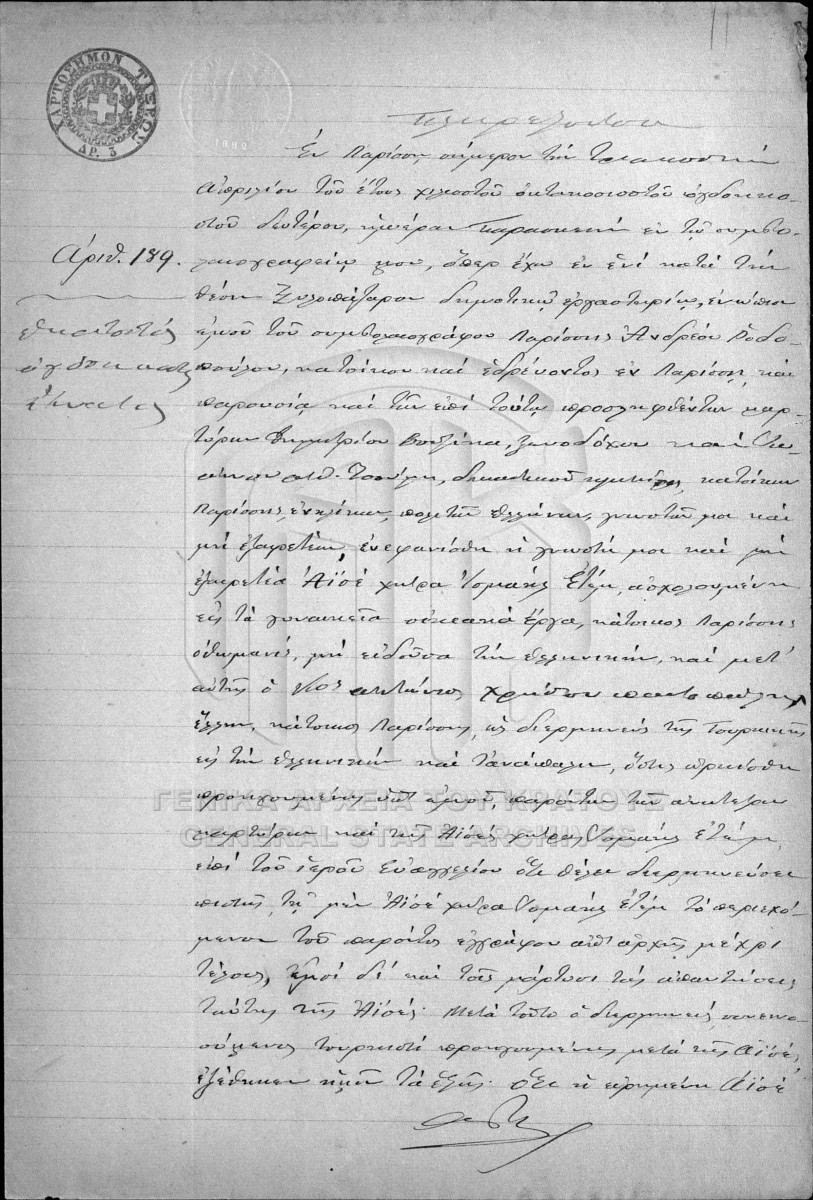 ΧΑΡΤΟΣΗΜΟΝ ΤΑΞΕΩΣ
ΔΡ. 3
Πληρεξούσιον
Ἐν Λαρίσσῃ σήμερον τὴν τριακοστὴν
Ἀπριλίου τοῦ ἔτους χιλιοστοῦ ὀκτακοσιοστοῦ ὀγδοηκο-
στοῦ δευτέρου, ἡμέραν Παρασκευὴν ἐν τῷ συμβο-
Ἀριθ. 189.
λαιογραφείῳ μου, ὅπερ ἔχω ἐν ἑνὶ κατὰ τὴν
θέσιν Ξυλοπάζαρον δημοτικῷ ἐργαστηρίῳ, ἐνώπιον
ἐμοῦ τοῦ συμβολαιογράφου Λαρίσσης Ἀνδρέου Ροδο-
πούλου, κατοίκου καὶ ἑδρεύοντος ἐν Λαρίσσῃ, καὶ
παρουσίᾳ καὶ τῶν ἐπὶ τούτῳ προσληφθέντων μαρ-
τύρων Δημητρίου, ξενοδόχου καὶ
δικαστικοῦ κλητῆρος, κατοίκων
Λαρίσσης, ἐνηλίκων, πολιτῶν Ἑλλήνων, γνωστῶν μοι καὶ
μὴ ἐξαιρετέων, ἐνεφανίσθη ἡ γνωστή μοι καὶ μὴ
ἐξαιρετέα Ἀϊσὲ χήρα Ὀσμάν Ἐτέμ, ἀσχολουμένη
εἰς τὰ γυναικεῖα οἰκιακὰ ἔργα, κάτοικος Λαρίσσης
ὀθωμανίς, μὴ εἰδοῦσα τὴν Ἑλληνικήν, καὶ μετ'
αὐτῆς ὁ Χρήστου παντοπώλης
Ἕλλην, κάτοικος Λαρίσσης, ὡς διερμηνεὺς τῆς Τουρκικῆς
εἰς τὴν Ἑλληνικὴν καὶ τἀνάπαλιν, ὅστις ὡρκίσθη
προηγουμένως ὑπ' ἐμοῦ, παρόντων τῶν ἀνωτέρω
μαρτύρων καὶ τῆς Ἀϊσὲς χήρας Ὀσμάν Ἐτέμ,
ἐπὶ τοῦ ἱεροῦ Εὐαγγελίου ὅτι θέλει διερμηνεύσει
πιστῶς τῇ μὲν Ἀϊσὲ χήρα Ὀσμάν Ἐτέμ τὸ περιεχό-
μενον τοῦ παρόντος ἐγγράφου ἀπ' ἀρχῆς μέχρι
τέλους, ἐμοὶ δὲ καὶ τοῖς μάρτυσι τὰς ἀπαντήσεις
ταύτης τῆς Ἀϊσές. Μετὰ τοῦτο ὁ διερμηνεύς, συνεννο-
ούμενος Τουρκιστὶ προηγουμένως μετὰ τῆς Ἀϊσέ,
ἐξέθηκεν ἡμῖν τὰ ἑξῆς· ὅτι ἡ εἰρημένη Ἀϊσὲ
ΓΕΝΙΚΑ ΑΡΧΕΙΑ ΤΟΥ ΚΡΑΤΟΥΣ
GENERAL STATE ARCHIVES